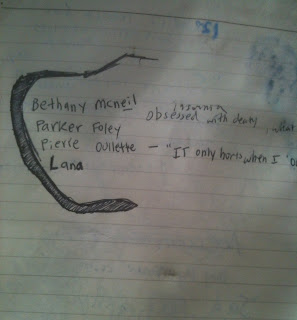 Bethany Mcneil insomnia
Obsessed with death,
Parker Foley
Pierre Oullette – "IT only hurts when I
Lana